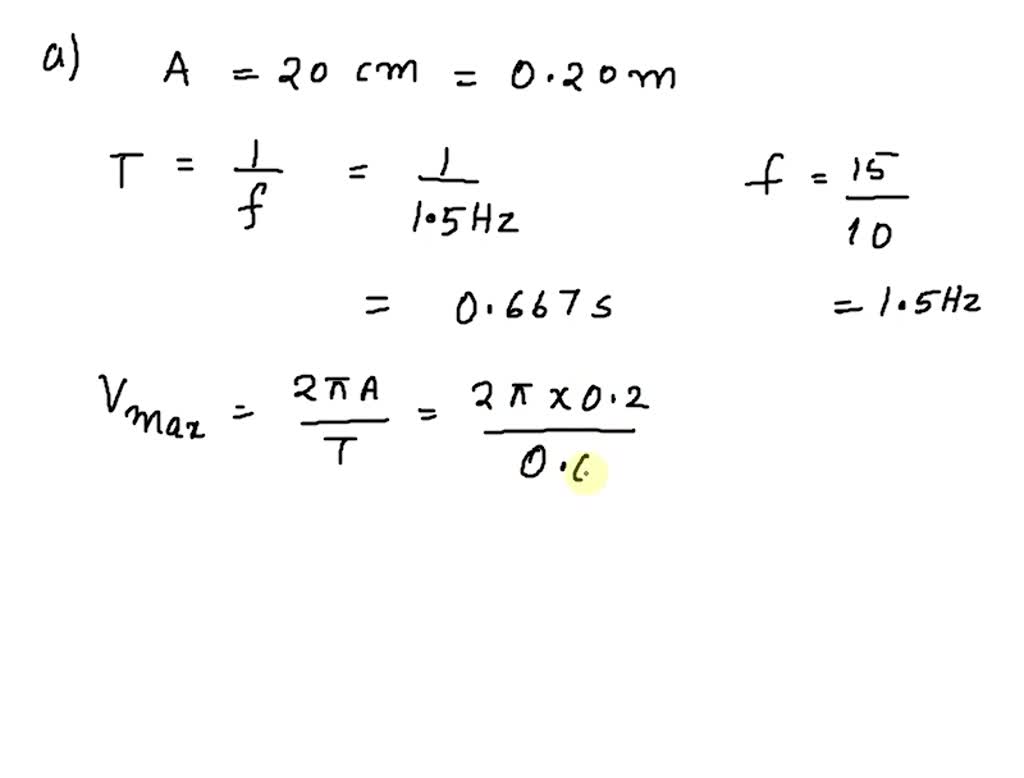 a) A = 20 cm = 0.20 m
T = 1/f = 1/1.5Hz f = 15/10
= 0.667 s = 1.5Hz
Vmax = 2πA/T = 2π x 0.2/0.